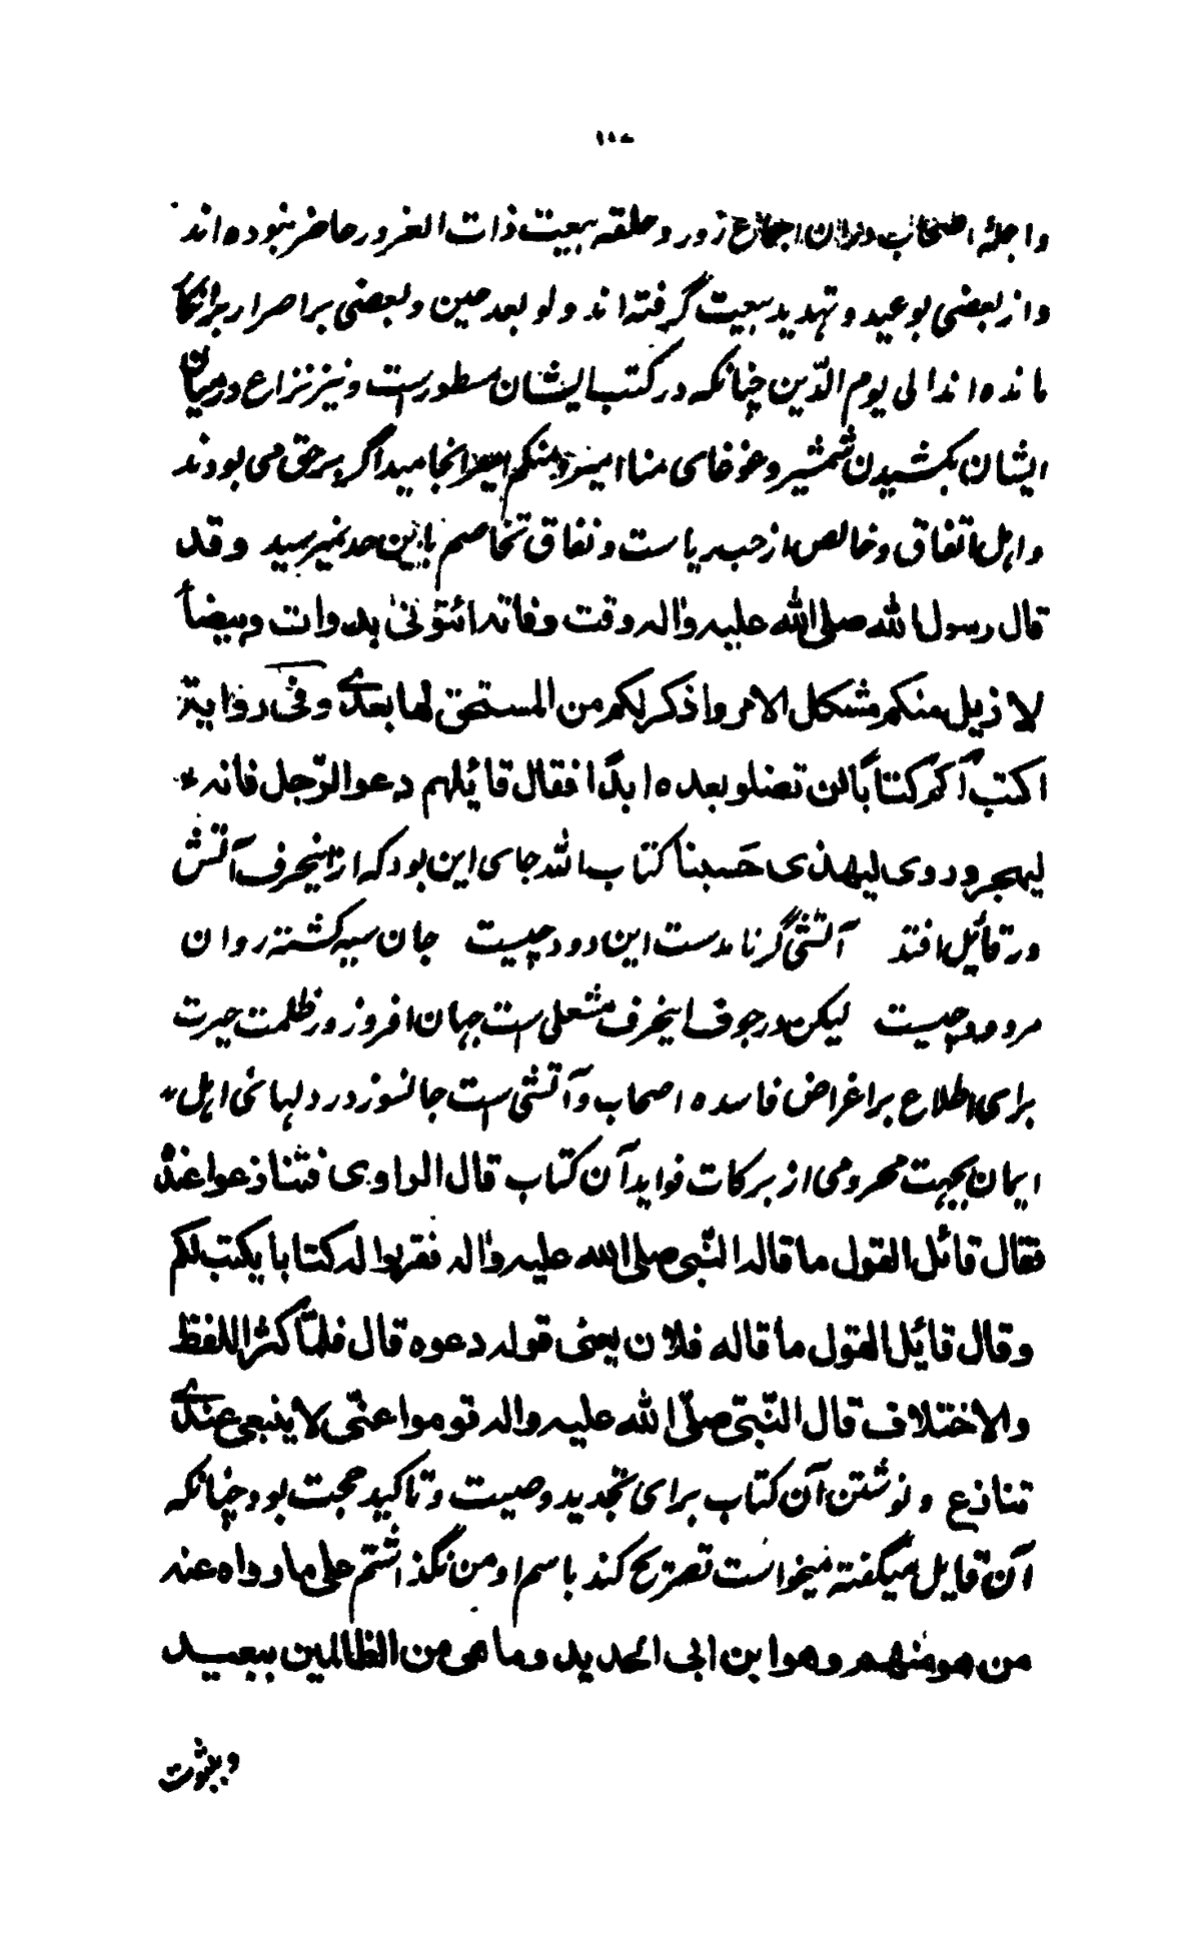 ۱۰۷
واجلهٔ اصحاب دران اجماع زور و حلقه بیعت ذات الغرور حاضر نبوده اند
و از بعضی بوعید و تهدید بیعت گرفته اند ولو بعد حین و بعضی بر اصرار بر انکا
مانده اند الی یوم الدّین چنانکه در کتب ایشان مسطورست و نیز نزاع درمیان
ایشان بکشیدن شمشیر و غوغای منا امیر و منکم امیر انجامید اگر بر حق می بودند
و اهل اتفاق و خالص از حب ریاست و نفاق تخاصم باین حد نمیرسید وقد
قال رسول الله صلی الله علیه واله وقت وفاته ائتونی بدوات وبیضاء
لازیل منکم مشکل الامر واذکر لکم من المستحق لها بعدی وفی روایة
اکتب لکم کتابا لن تضلو بعده ابدًا فقال قایلهم دعوا الرّجل فانه
لیهجر وروی لیهذی حَسبنا کتاب الله جای این بود که ازینحرف آتش
در قایل افتد آتشی گر نامدست این دود چیست جان سیه گشته روان
مردود چیست لیکن در جوف اینحرف مشعلی ست جهان افروز در ظلمت حیرت
برای اطلاع بر اغراض فاسده اصحاب و آتشی ست جانسوز در دلهائی اهل
ایمان بجهت محرومی از برکات فواید آن کتاب قال الراوی فتنازعوا عنده
فقال قائل القول ما قاله النّبی صلی الله علیه واله فقربوا له کتابا یکتب لکم
وقال قایل القول ما قاله فلان یعنی قوله دعوه قال فلمّا کثر اللفظ
والاختلاف قال النّبی صلّی الله علیه واله قوموا عنّی لا ینبغی عندی
تنازع و نوشتن آن کتاب برای تجدید وصیت و تاکید حجت بود چنانکه
آن قایل میگفته میخواست تصریح کند باسم او من نگذاشتم علی ما رواه عنه
من هو منهم وهو ابن ابی الحدید وما هی من الظالمین ببعید
و بثبوت